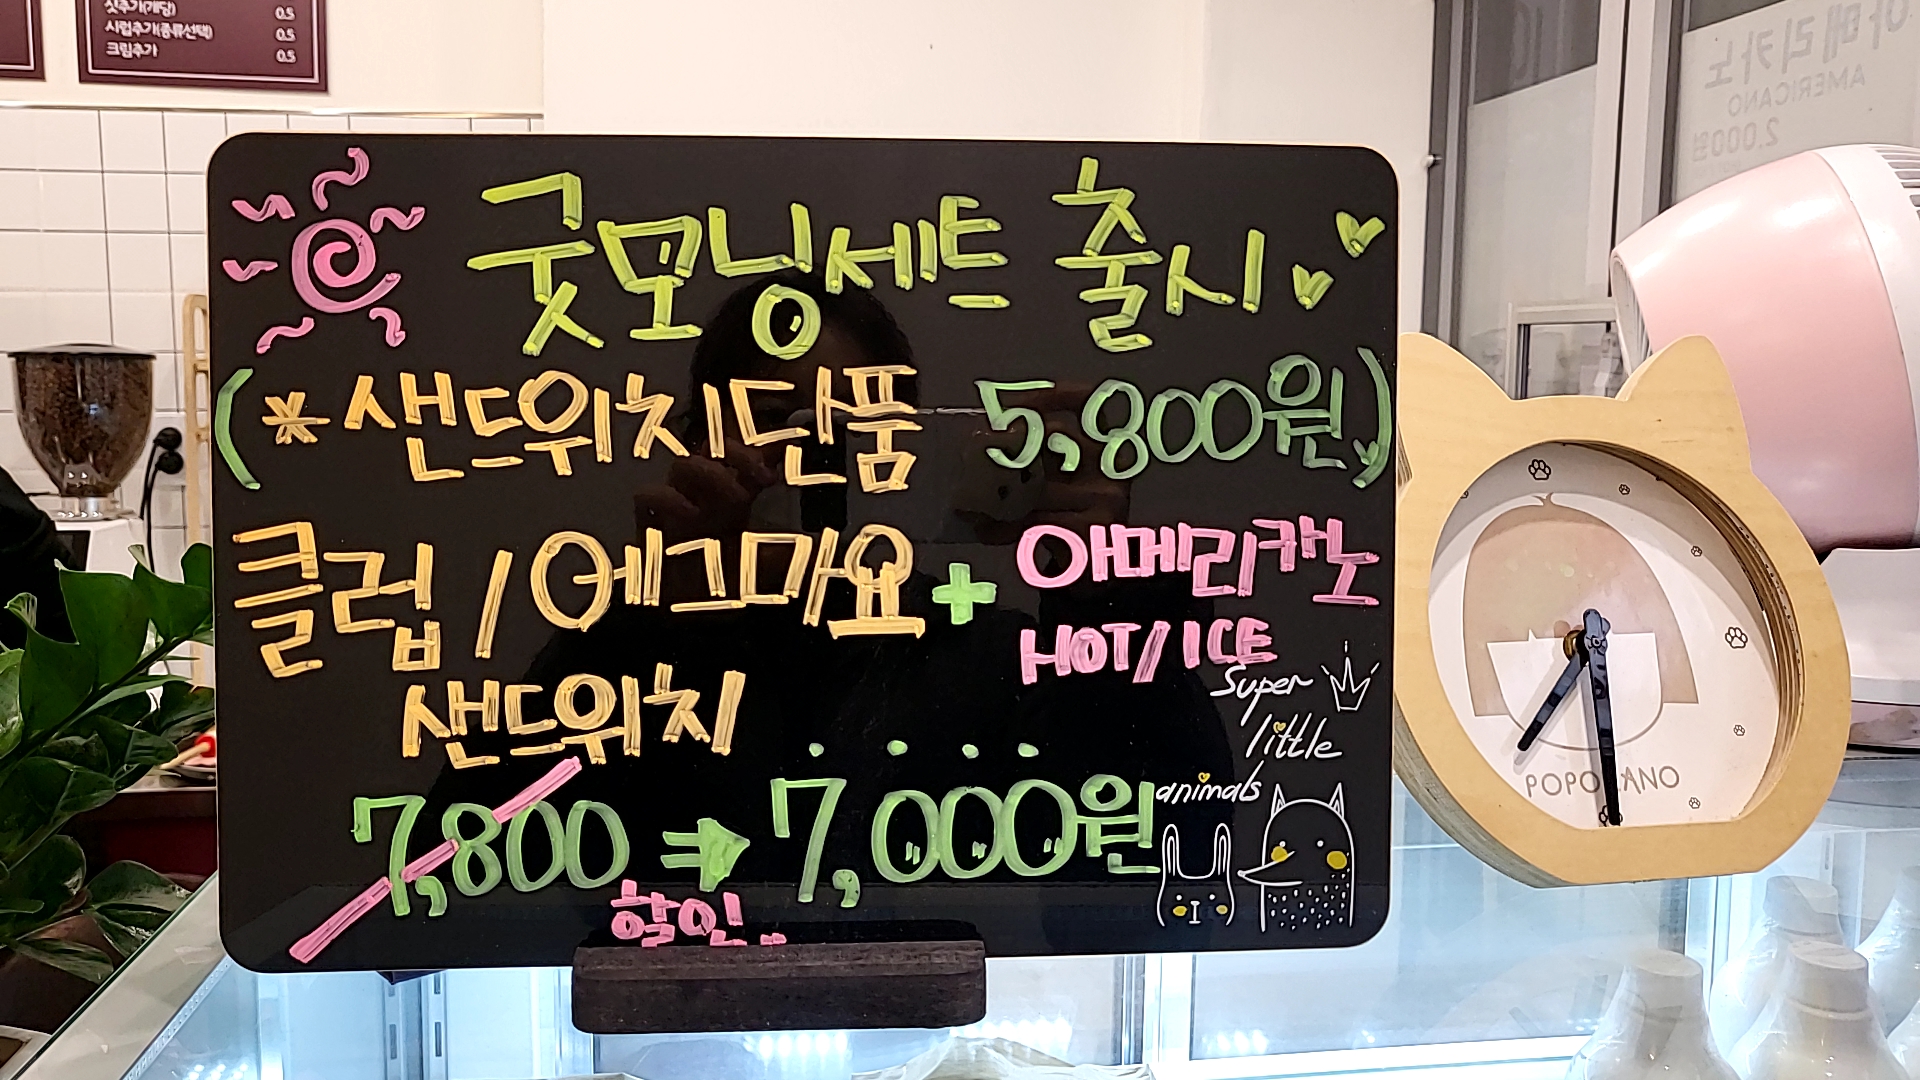 샷추가(개당) 0.5
시럽추가(종류선택) 0.5
크림추가 0.5
아메리카노
AMERICANO
2,000원
굿모닝세트 출시
(*샌드위치단품 5,800원)
클럽/에그마요 + 아메리카노
HOT/ICE
샌드위치
7,800 ⇒ 7,000원
할인
super
little
animals